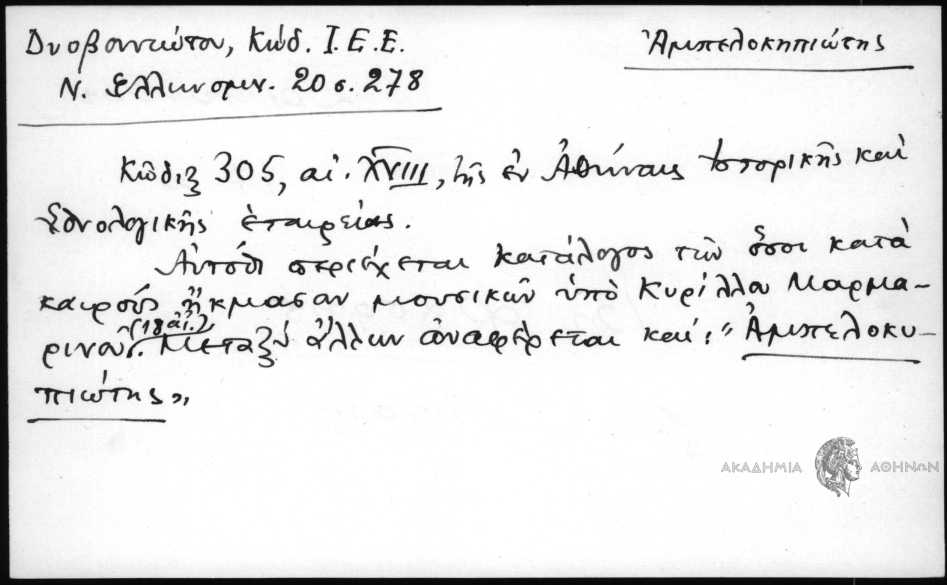 Δυοβουνιώτου, Κώδ. Ι.Ε.Ε.
Ἀμπελοκηπιώτης
Ν. Ἑλληνομν. 20 σ. 278
Κῶδιξ 305, αἰ. XVIII, τῆς ἐν Ἀθήναις Ἱστορικῆς καὶ
Ἐθνολογικῆς ἑταιρείας.
Αὐτόθι περιέχεται κατάλογος τῶν ὅσοι κατὰ
καιροὺς ἤκμασαν μουσικῶν ὑπὸ Κυρίλλου Μαρμα-
ρινοῦ (18 αἰ.). Μεταξὺ ἄλλων ἀναφέρεται καί: "Ἀμπελοκυ-
πιώτης"
ΑΚΑΔΗΜΙΑ ΑΘΗΝΩΝ